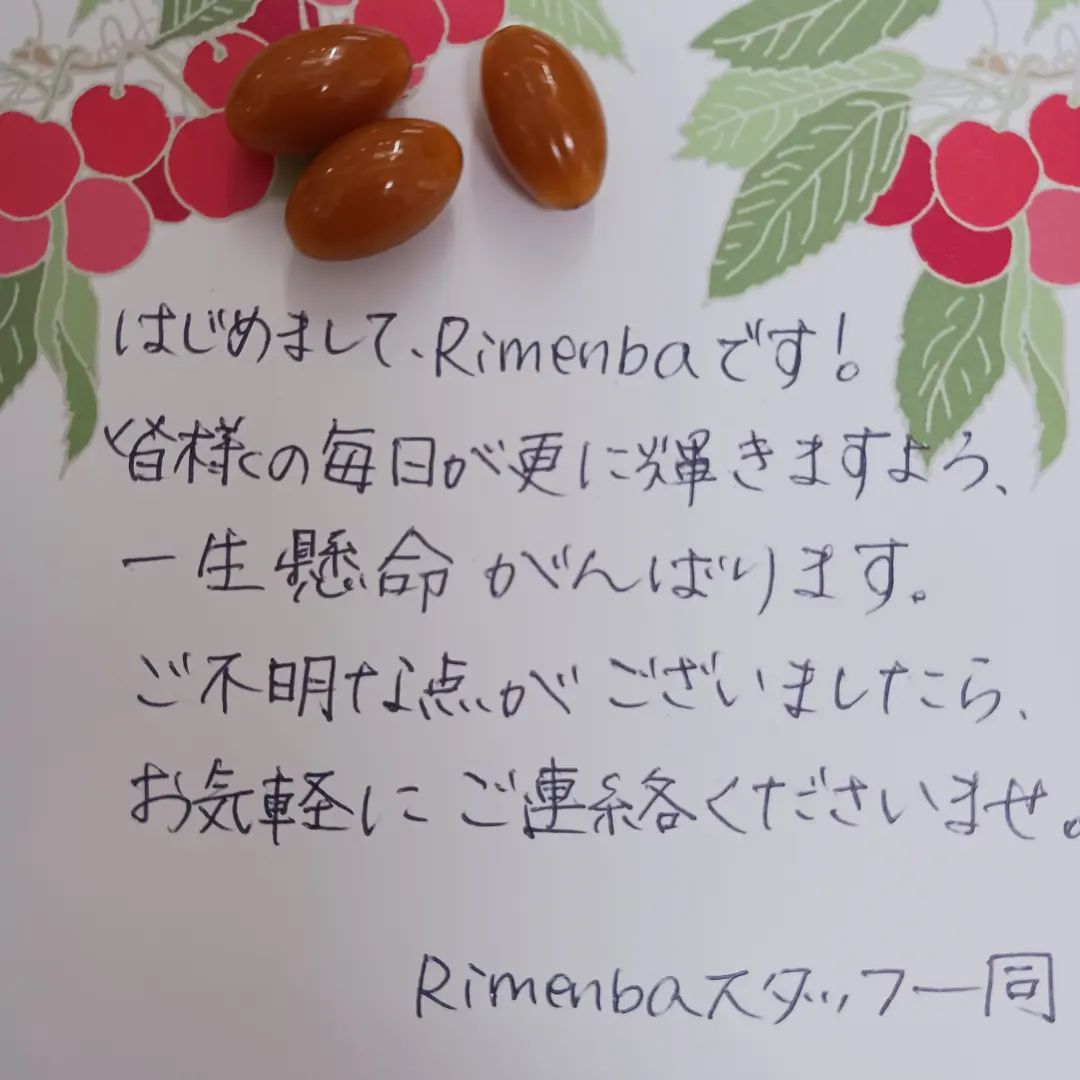 はじめまして、Rimenbaです!
皆様の毎日が更に輝きますよう、
一生懸命がんばります。
ご不明な点がございましたら、
お気軽にご連絡くださいませ。
Rimenbaスタッフ一同